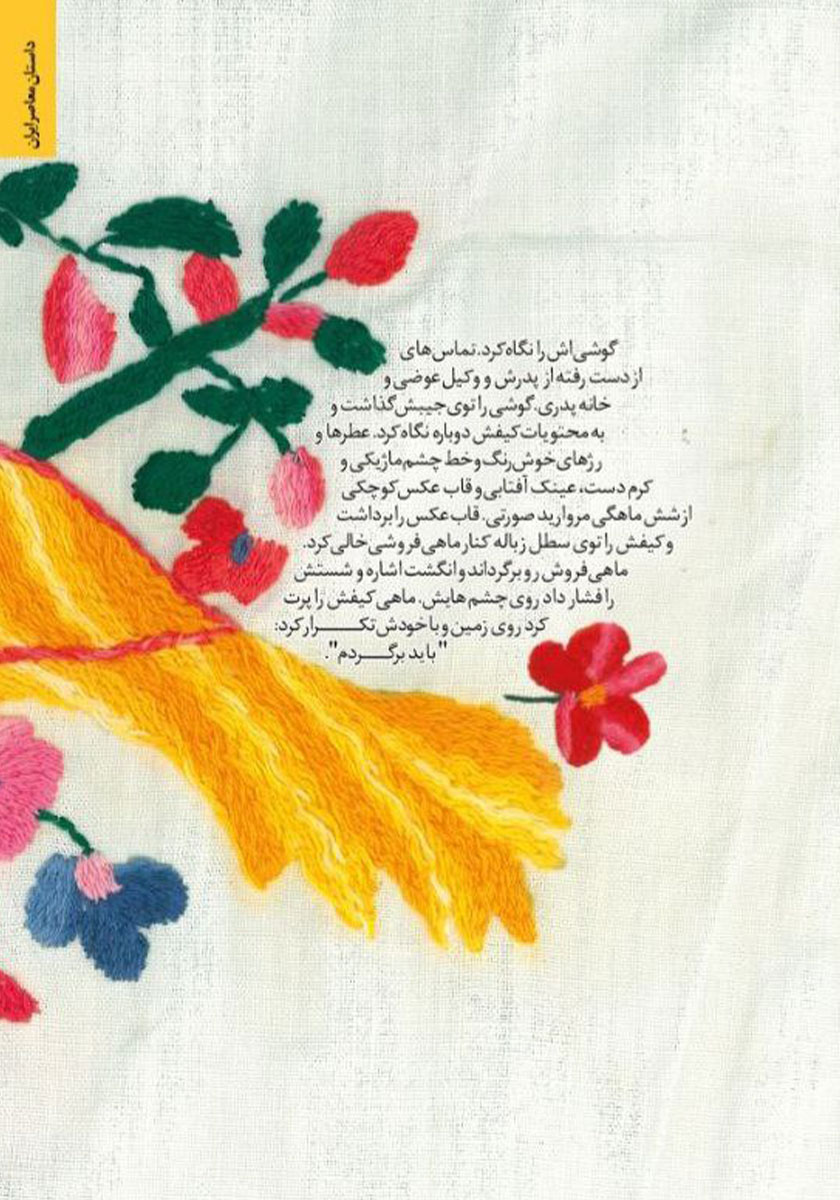 داستان معاصر ایران
گوشی‌اش را نگاه کرد. تماس‌های
از دست رفته از پدرش و وکیل عوضی و
خانه پدری. گوشی را توی جیبش گذاشت و
به محتویات کیفش دوباره نگاه کرد. عطرها و
رژهای خوش‌رنگ و خط چشم ماژیکی و
کرم دست، عینک آفتابی و قاب عکس کوچکی
از شش ماهگی مروارید صورتی. قاب عکس را برداشت
و کیفش را توی سطل زباله کنار ماهی فروشی خالی کرد.
ماهی‌فروش رو برگرداند و انگشت اشاره و شستش
را فشار داد روی چشم‌هایش. ماهی کیفش را پرت
کرد روی زمین و با خودش تکـــــرار کرد:
"باید برگـــــردم".